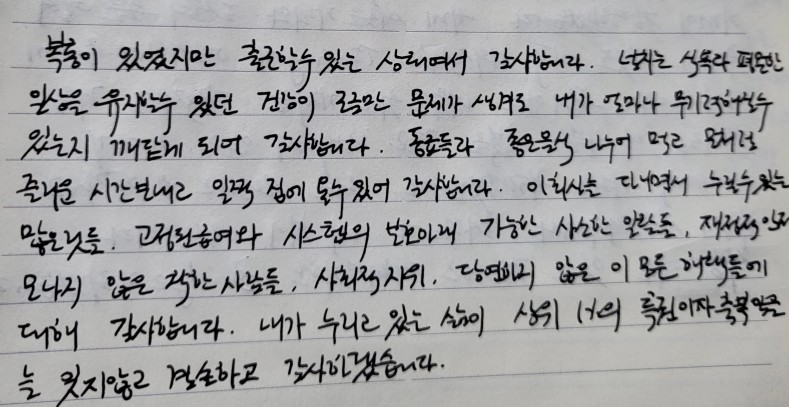 복통이 있었지만 출근할수 있는 상태여서 감사합니다. 넘치는 식욕과 평온한
일상을 유지할수 있던 건강이 조금만 문제가 생겨도 내가 얼마나 무기력해질수
있는지 깨닫게 되어 감사합니다. 동료들과 좋은음식 나누어 먹고 오래
즐거운 시간보내고 일찍 집에 올수 있어 감사합니다. 이 회사를 다니면서 누릴수 있는
많은것들, 고정된 급여와 시스템의 보호아래 가능한 사소한 일탈들, 재정적
모나지 않은 착한 사람들, 사회적 지위, 당연하지 않은 이 모든 혜택들에
대해 감사합니다. 내가 누리고 있는 삶이 상위 1%의 특권이자 축복임을
늘 잊지않고 겸손하고 감사하겠습니다.